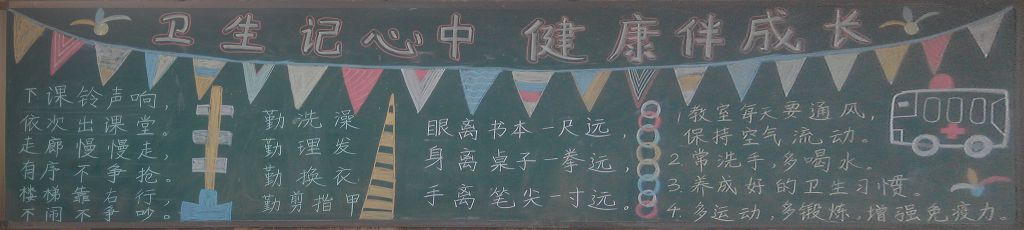 卫生记心中 健康伴成长
下课铃声响，
依次出课堂。
走廊慢慢走，
有序不争抢。
楼梯靠右行，
不闹不争吵。
勤洗澡
勤理发
勤换衣
勤剪指甲
眼离书本一尺远，
身离桌子一拳远，
手离笔尖一寸远。
1.教室每天要通风，
保持空气流动。
2.常洗手，多喝水。
3.养成好的卫生习惯。
4.多运动，多锻炼，增强免疫力。